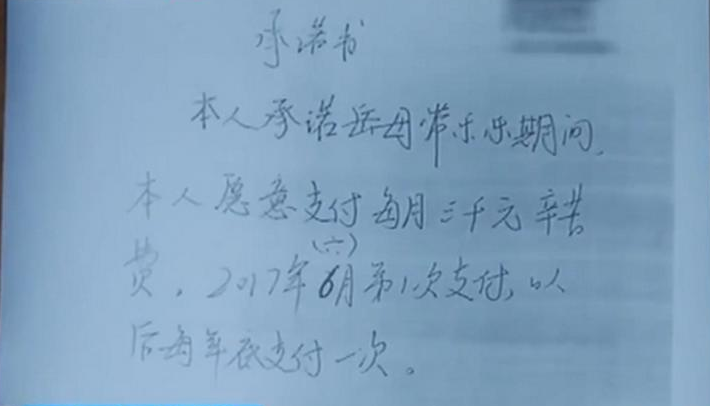 承诺书
本人承诺岳母带乐乐期间,
本人愿意支付每月三千元辛苦
(六)
费，2017年6月第1次支付,以
后每年底支付一次。